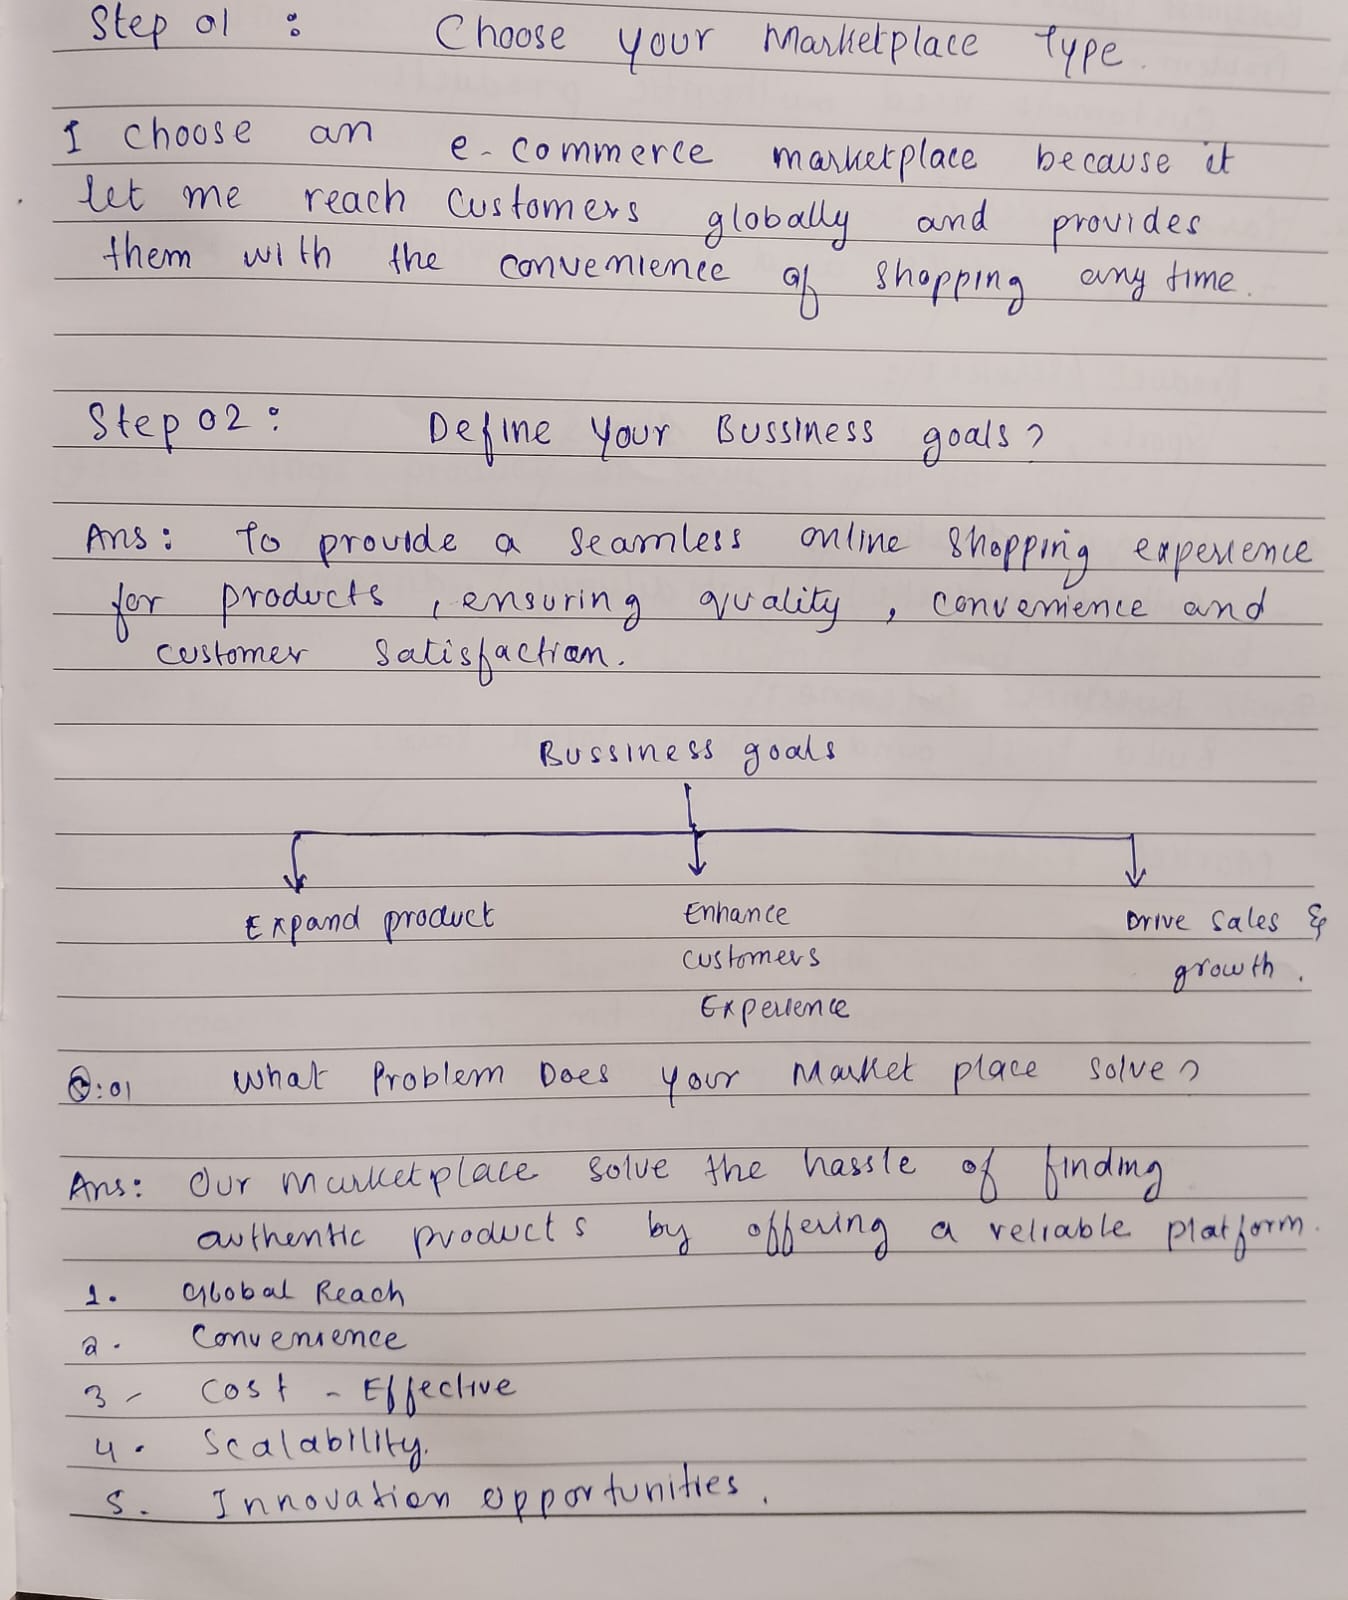 Step 01 : Choose your Marketplace Type.
I choose an e-commerce marketplace because it
let me reach customers globally and provides
them with the convenience of shopping any time.
Step 02 : Define your Bussiness goals?
Ans: To provide a seamless online shopping experience
for products, ensuring quality, convenience and
customer satisfaction.
Bussiness goals
Expand product
Enhance
customers
Experience
Drive sales &
growth.
Q:01 What Problem Does your Market place solve?
Ans: Our marketplace solve the hassle of finding
authentic products by offering a reliable platform.
1. Global Reach
2. Convenience
3- Cost - Effective
4. Scalability.
5. Innovation opportunities.